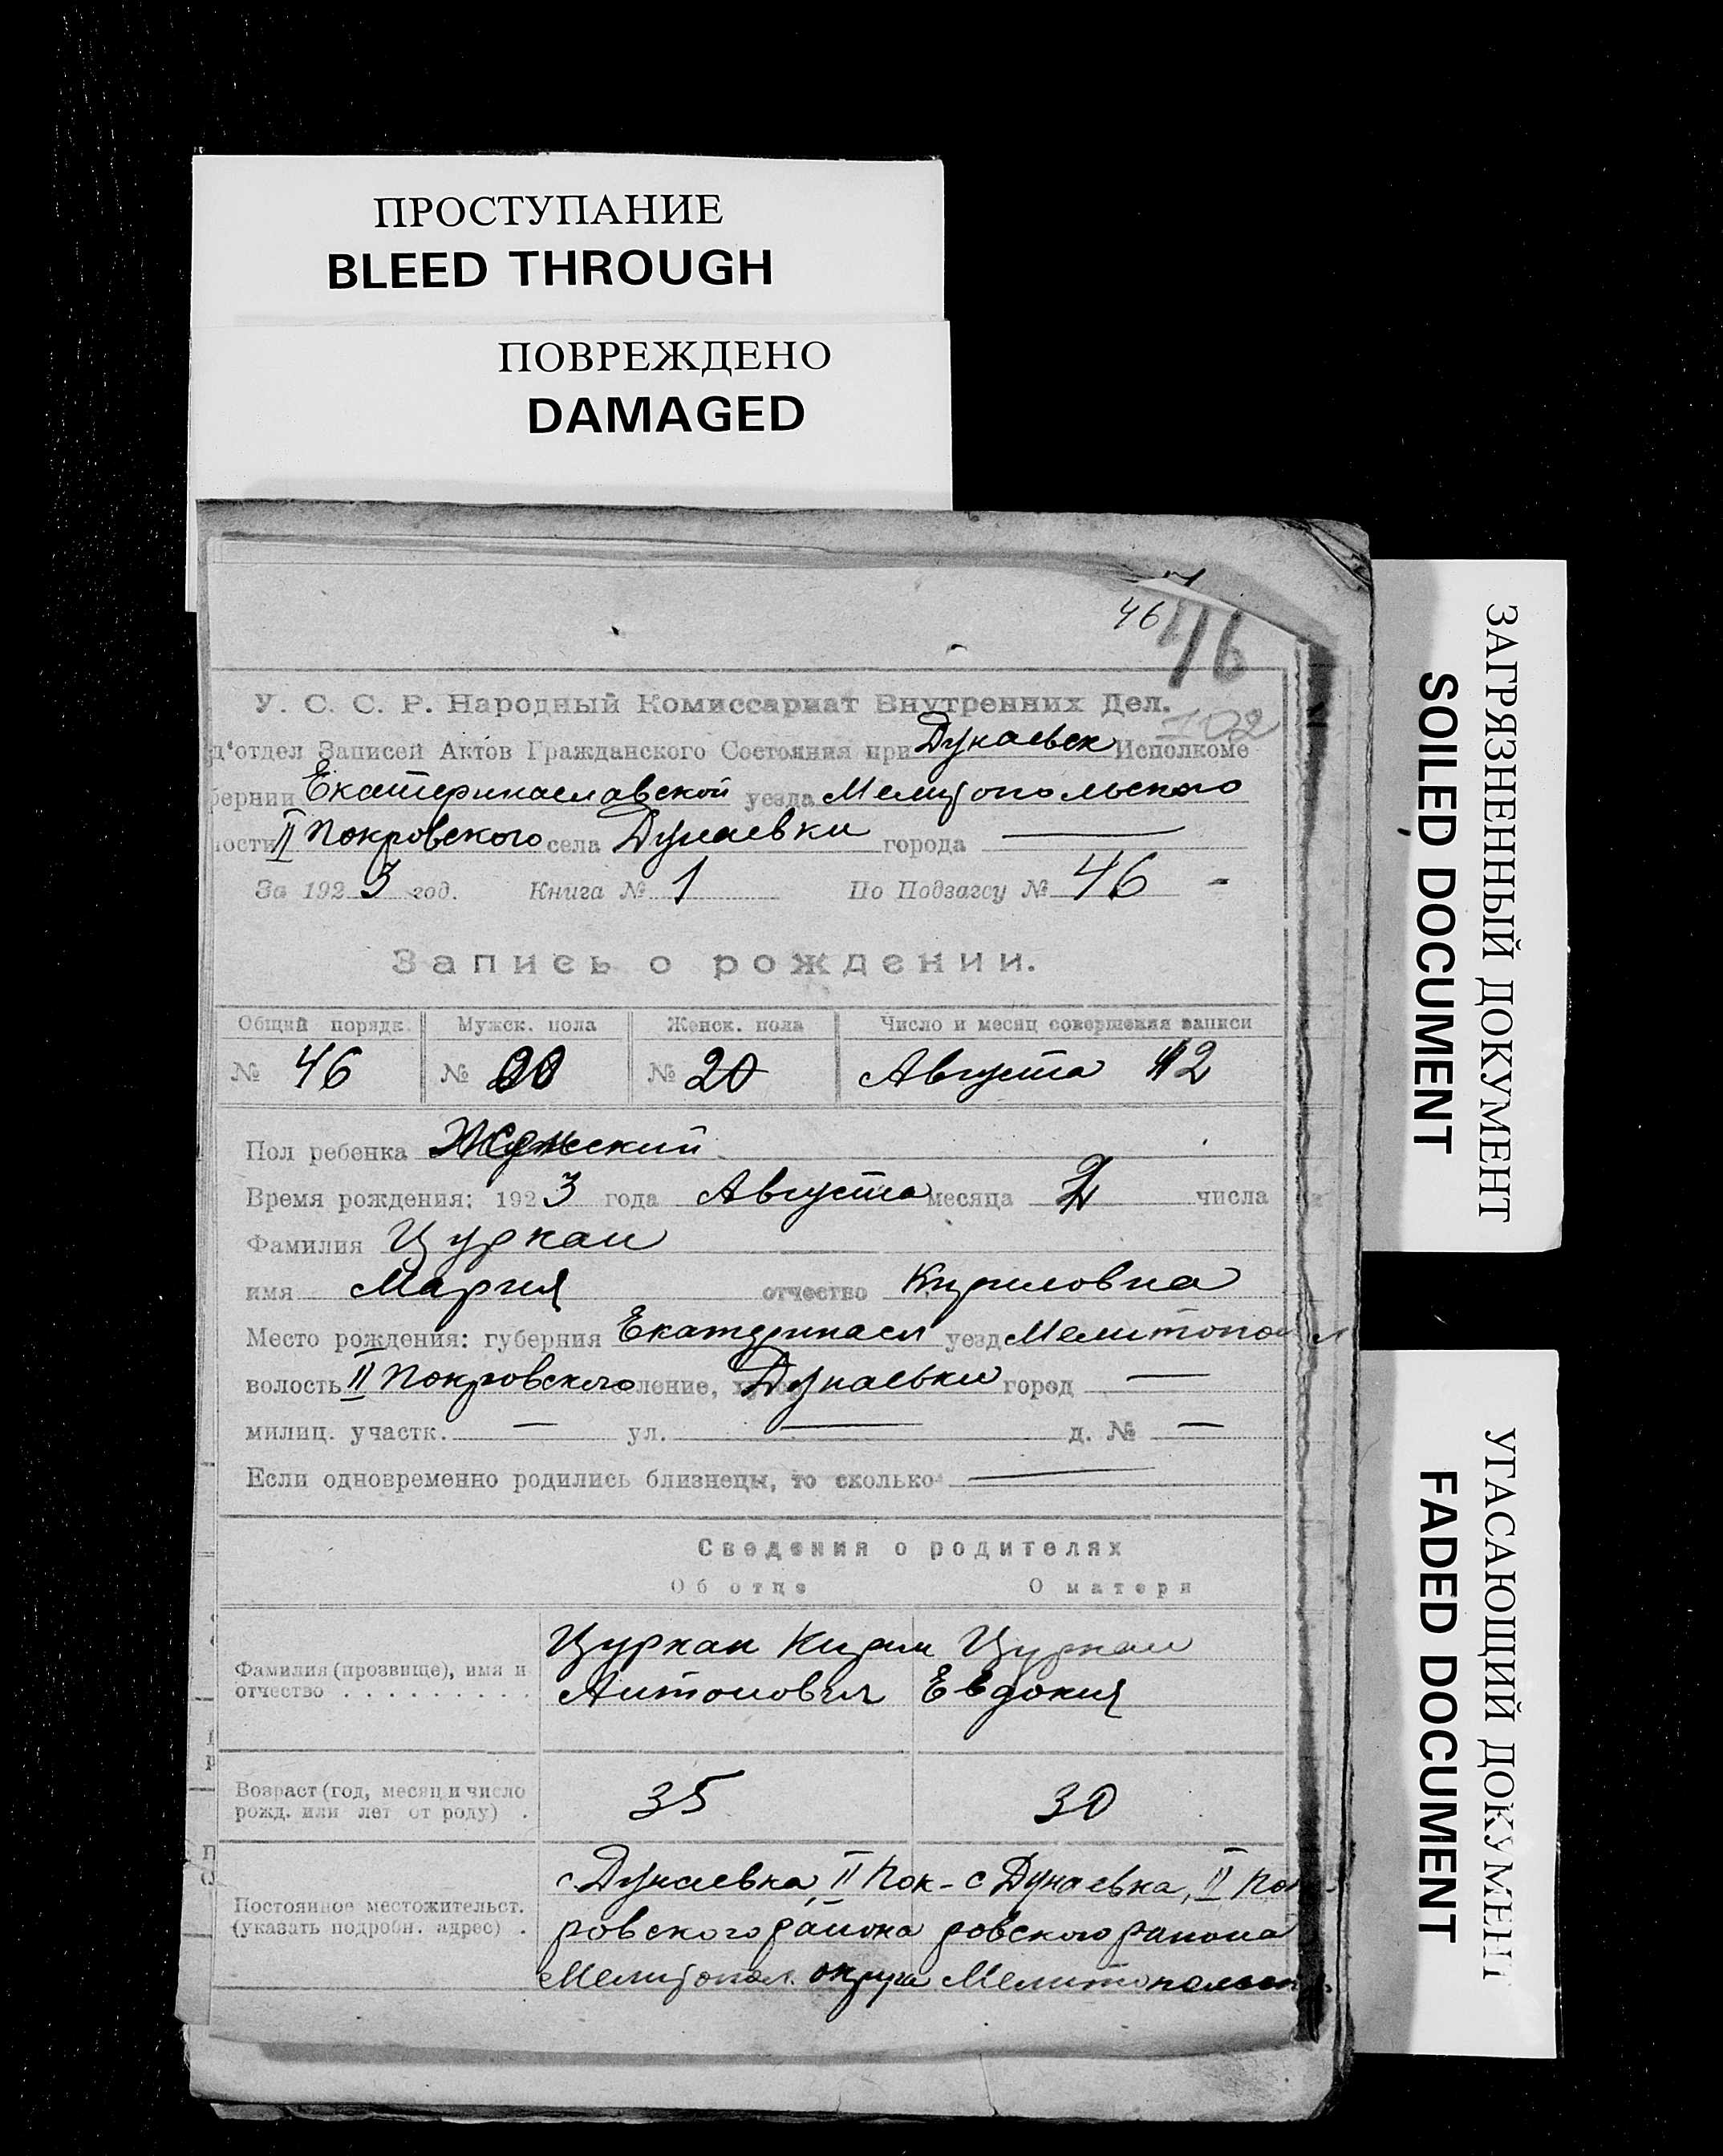 ПРОСТУПАНИЕ
BLEED THROUGH
ПОВРЕЖДЕНО
DAMAGED
46 46
У. С. С. Р. Народный Комиссариат Внутренних Дел.
102
д'отдел Записей Актов Гражданского Состояния при Дунаевск Исполкоме
бернии Екатеринославской уезда Мелитопольского
ности II Покровского села Дунаевки города —
За 1923 год. Книга № 1 По Подзагсу № 46
Запись о рождении.
Общий порядк. Мужск. пола Женск. пола Число и месяц совершения записи
№ 46 № № 20 Августа 12
Пол ребенка Женский
Время рождения: 1923 года Августа месяца числа
Фамилия Цуркан
имя Мария отчество Кириловна
Место рождения: губерния Екатеринасл уезд Мелитопол
волость II Покровского ление, хутор Дунаевки город —
милиц. участк. — ул. — д. № —
Если одновременно родились близнецы, то сколько —
Сведения о родителях
Об отце О матери
Фамилия (прозвище), имя и отчество . . . . . . . . .
Цуркан Кирил
Антонович
Цуркан
Евдокия
Возраст (год, месяц и число рожд. или лет от роду) .
35 30
Постоянное местожительст. (указать подробн. адрес) .
с Дунаевка, II Пок-
ровского района
Мелитопол. округа
с Дунаевка, II Пок-
ровского района
Мелитопольск
ЗАГРЯЗНЕННЫЙ ДОКУМЕНТ
SOILED DOCUMENT
УГАСАЮЩИЙ ДОКУМЕНТ
FADED DOCUMENT